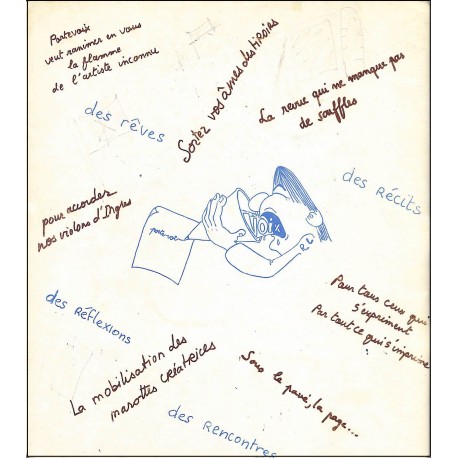 Portevoix
veut ranimer en vous
la flamme
de l'artiste inconnu
Sortez vos âmes des tiroirs
La revue qui ne manque pas
de souffles
des rêves
des RÉCITS
pour accorder
nos violons d'Ingres
VOIX
portevoix
Pour tous ceux qui
s'expriment
Par tout ce qui s'imprime
des RÉFLEXIONS
La mobilisation des
marottes CRÉATRICES
Sous le pavé, la page...
des RENCONTRES